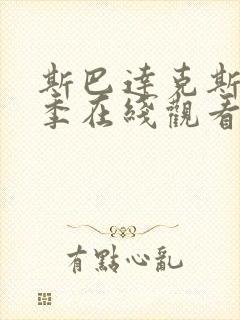 斯巴達克斯
季在綫觀看
有點心亂